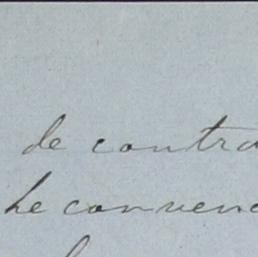 de contra
he convenc